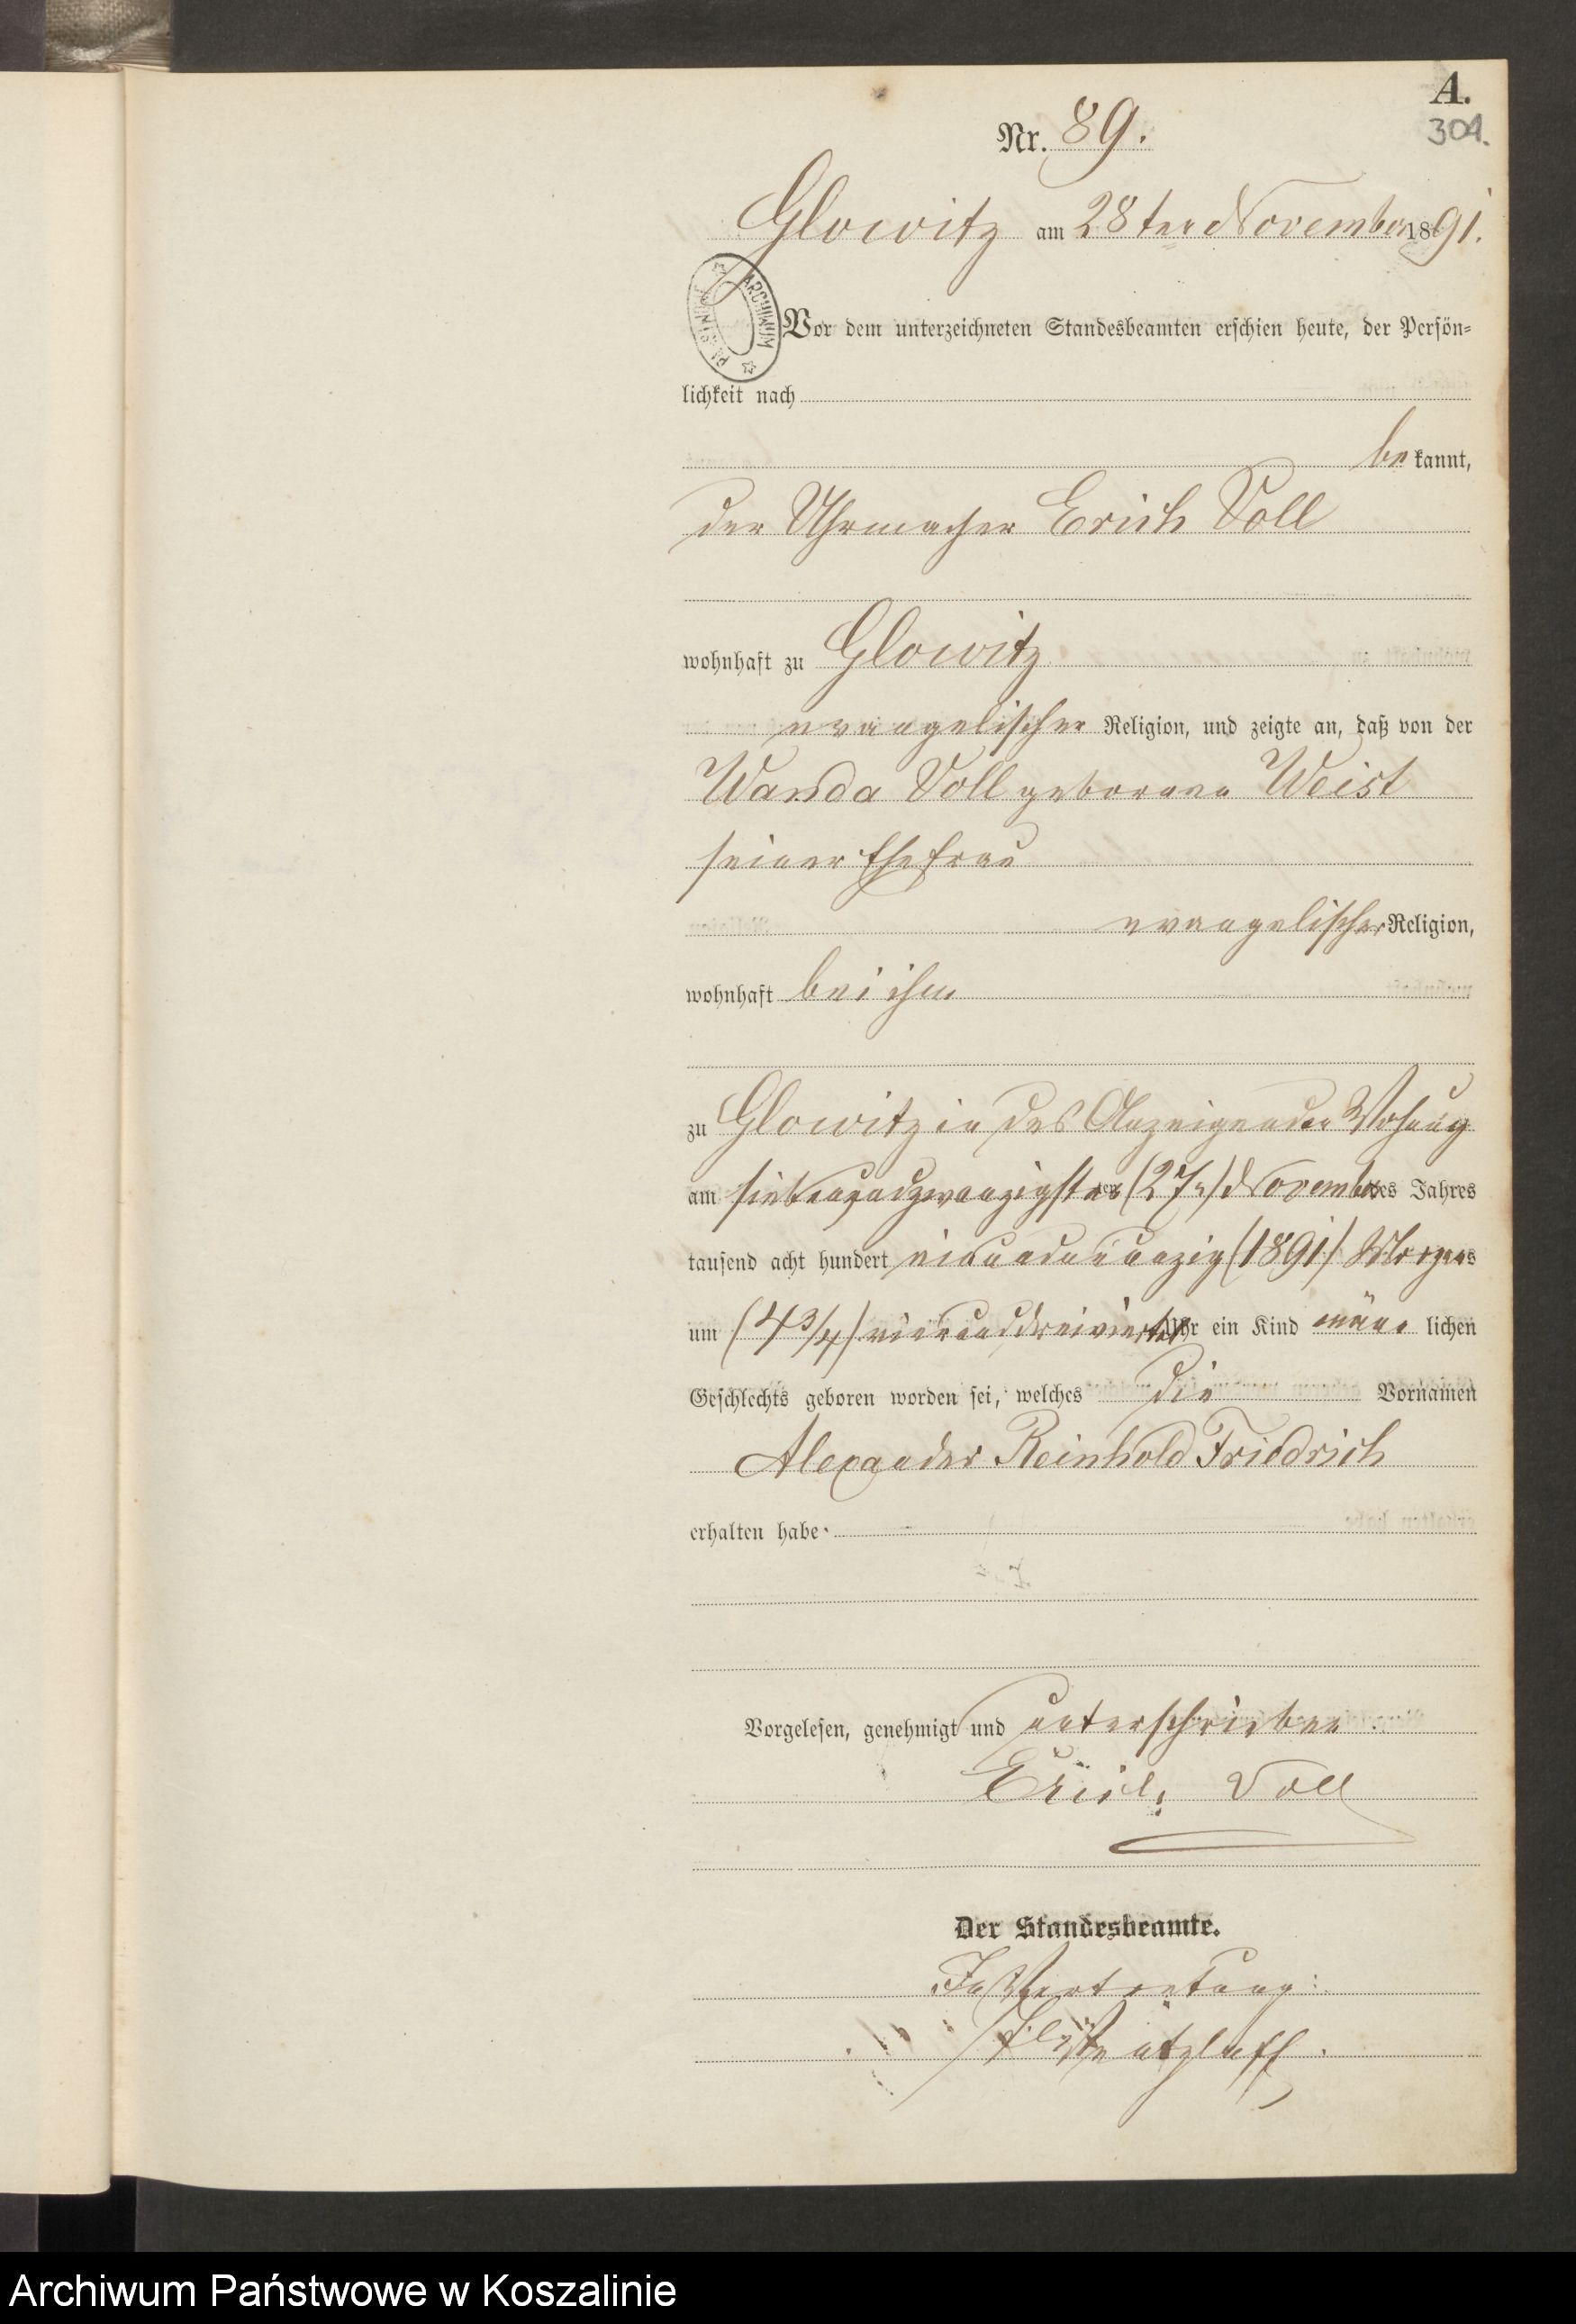 A.
304.
Nr. 89.
Glowitz am 28ten November 1891.
ARCHIWUM
Vor dem unterzeichneten Standesbeamten erschien heute, der Persön-
lichkeit nach
bekannt,
der Uhrmacher Erich Voll
wohnhaft zu Glowitz
evangelischer Religion, und zeigte an, daß von der
Wanda Voll geborene Weist
seiner Ehefrau
evangelischer Religion,
wohnhaft bei ihm
zu Glowitz in des Anzeigenden Wohung
am siebenundzwanzigsten (27n) November des Jahres
tausend acht hundert einundneunzig (1891) Morgens
um (4 3/4) vierunddreiviertel Uhr ein Kind männlichen
Geschlechts geboren worden sei, welches die Vornamen
Alexander Reinhold Friedrich
erhalten habe.
Vorgelesen, genehmigt und unterschrieben
Erich Voll
Der Standesbeamte.
In Vertretung:
Archiwum Państwowe w Koszalinie